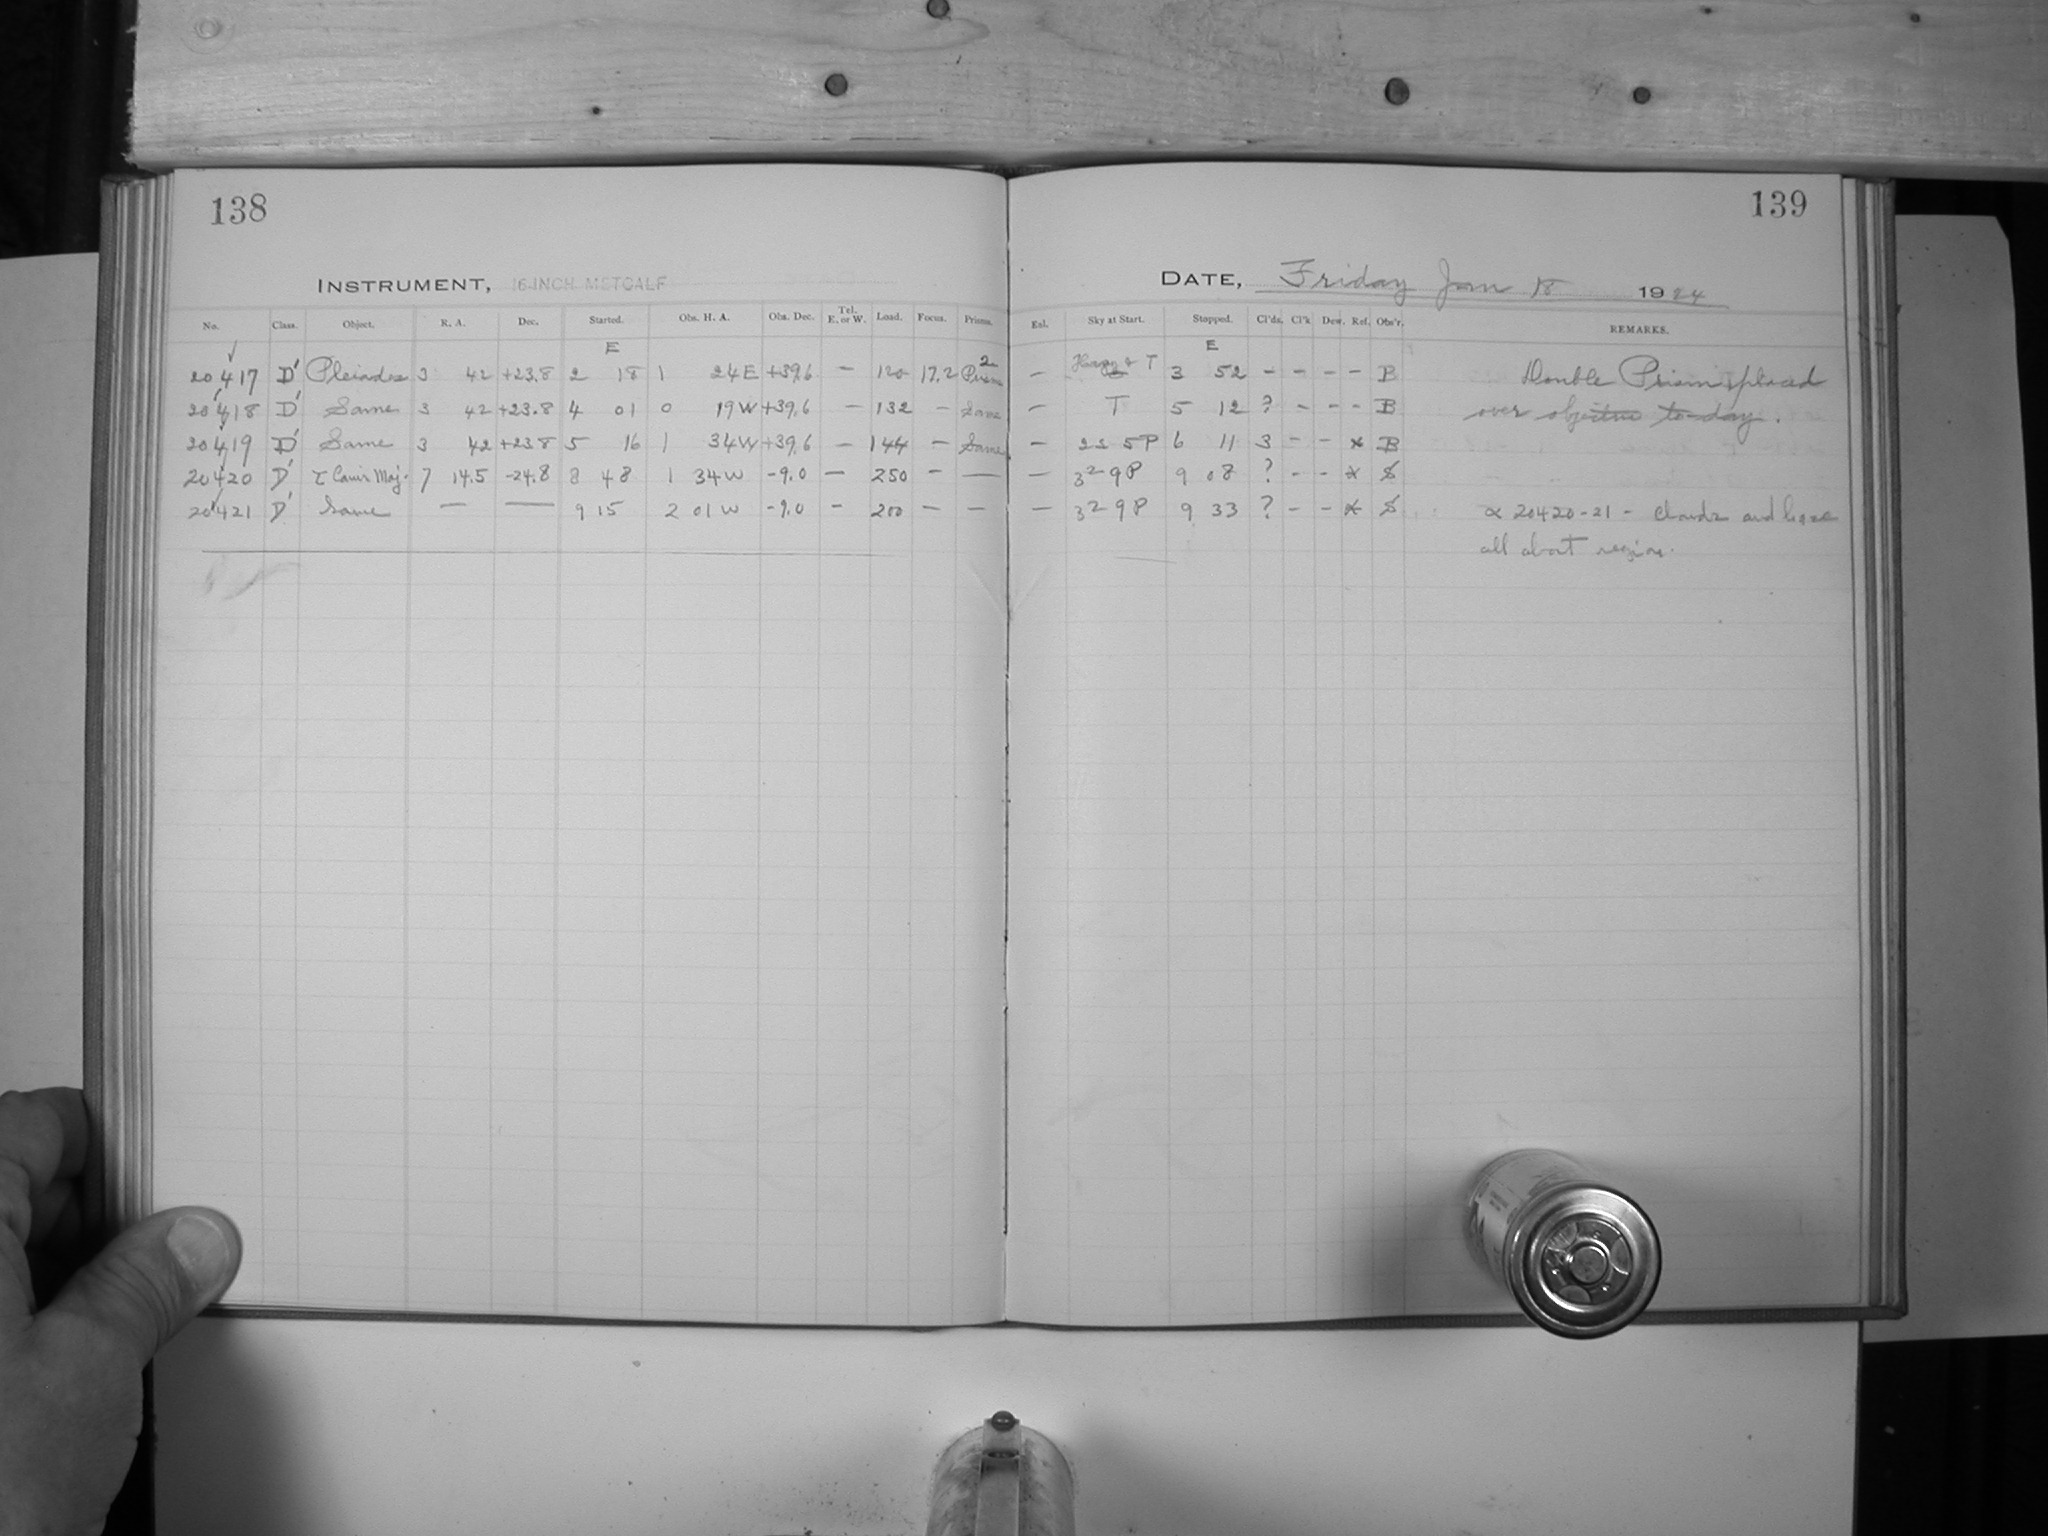 138
139
INSTRUMENT, 16-INCH METCALF
DATE, Friday Jan 18 1924
No. Class. Object. R. A. Dec. Started. Obs. H. A. Obs. Dec. Tel. E. or W. Load. Focus. Prisms. Exl. Sky at Start. Stopped. Cl'ds. Cl'k Dew. Ref. Obs'r. REMARKS.
E E
20417 D' Pleiades 3 42 +23.8 2 18 1 24 E +39.6 — 120 17.2 2 Prisms — & T 3 52 - - - - B Double Prism placed
20418 D' Same 3 42 +23.8 4 01 0 19 W +39.6 — 132 - Same — T 5 12 ? - - - B over objective to-day.
20419 D' Same 3 42 +23.8 5 16 1 34 W +39.6 — 144 - Same — 2s 5P 6 11 3 - - * B
20420 D' τ Canis Maj. 7 14.5 -24.8 8 48 1 34 W -9.0 — 250 - — — 3 2 9 P 9 08 ? - - * S
20421 D' Same — — 9 15 2 01 W -9.0 - 200 - - — 3 2 9 P 9 33 ? - - * S 20420-21 - Clouds and haze
all about region.